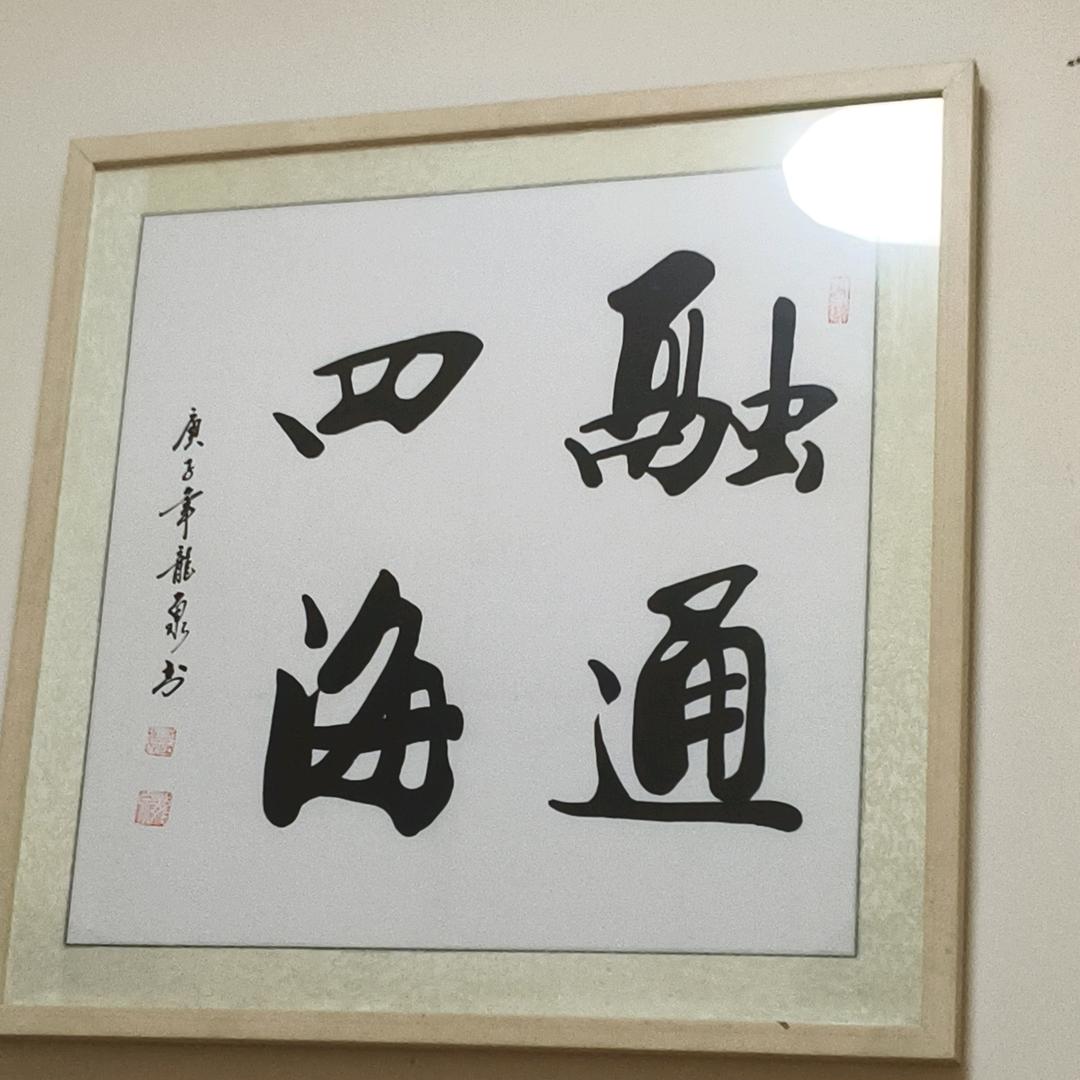 融通
四海
庚子年龍泉书